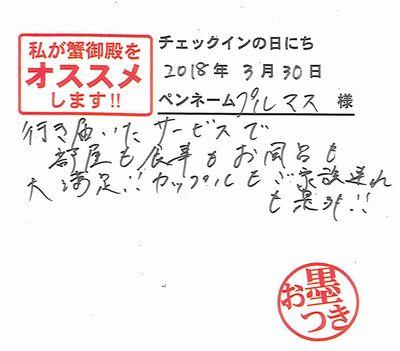 私が蟹御殿を
オススメ
します!!
チェックインの日にち
2018年 3月 30日
ペンネーム プルマス 様
行き届いたサービスで
部屋も食事もお風呂も
大満足!! カップルもご家族連れ
も是非!!
お墨つき